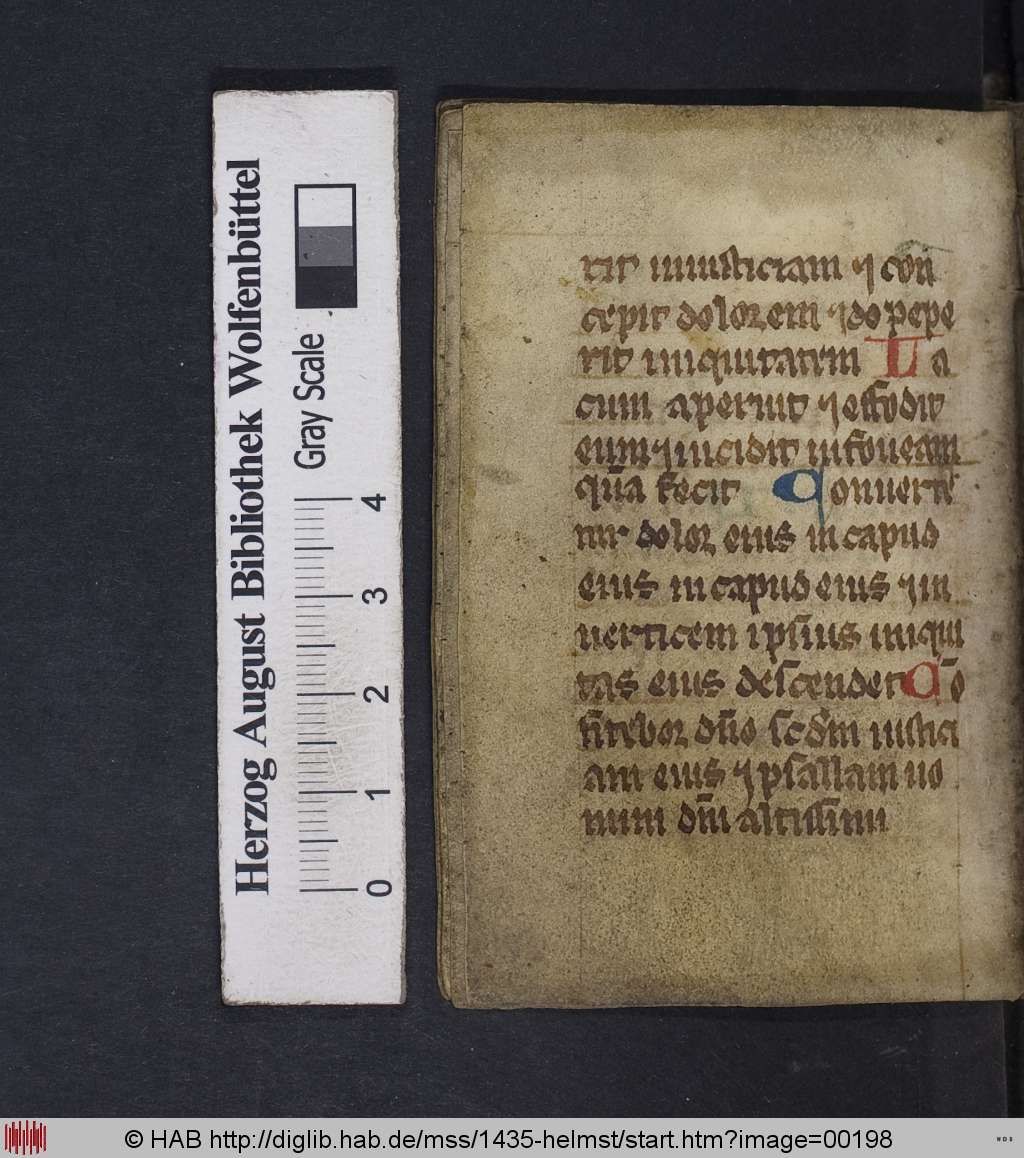 Herzog August Bibliothek Wolfenbüttel
Gray Scale
0 1 2 3 4
tit iniusticiam ⁊ con
cepit dolorem ⁊ do pepe
rit iniquitatem La
cum aperuit ⁊ effodit
eum ⁊ incidit in foueam
qūa fecit Conuerte
tur dolor eius in capud
eius in capud eius ⁊ in
uerticem ipsius iniqui
tas eius descendet Cō
fitebor dn̄o scd̄m iustici
am eius ⁊ psallam no
num dn̄i altissimi
© HAB http://diglib.hab.de/mss/1435-helmst/start.htm?image=00198